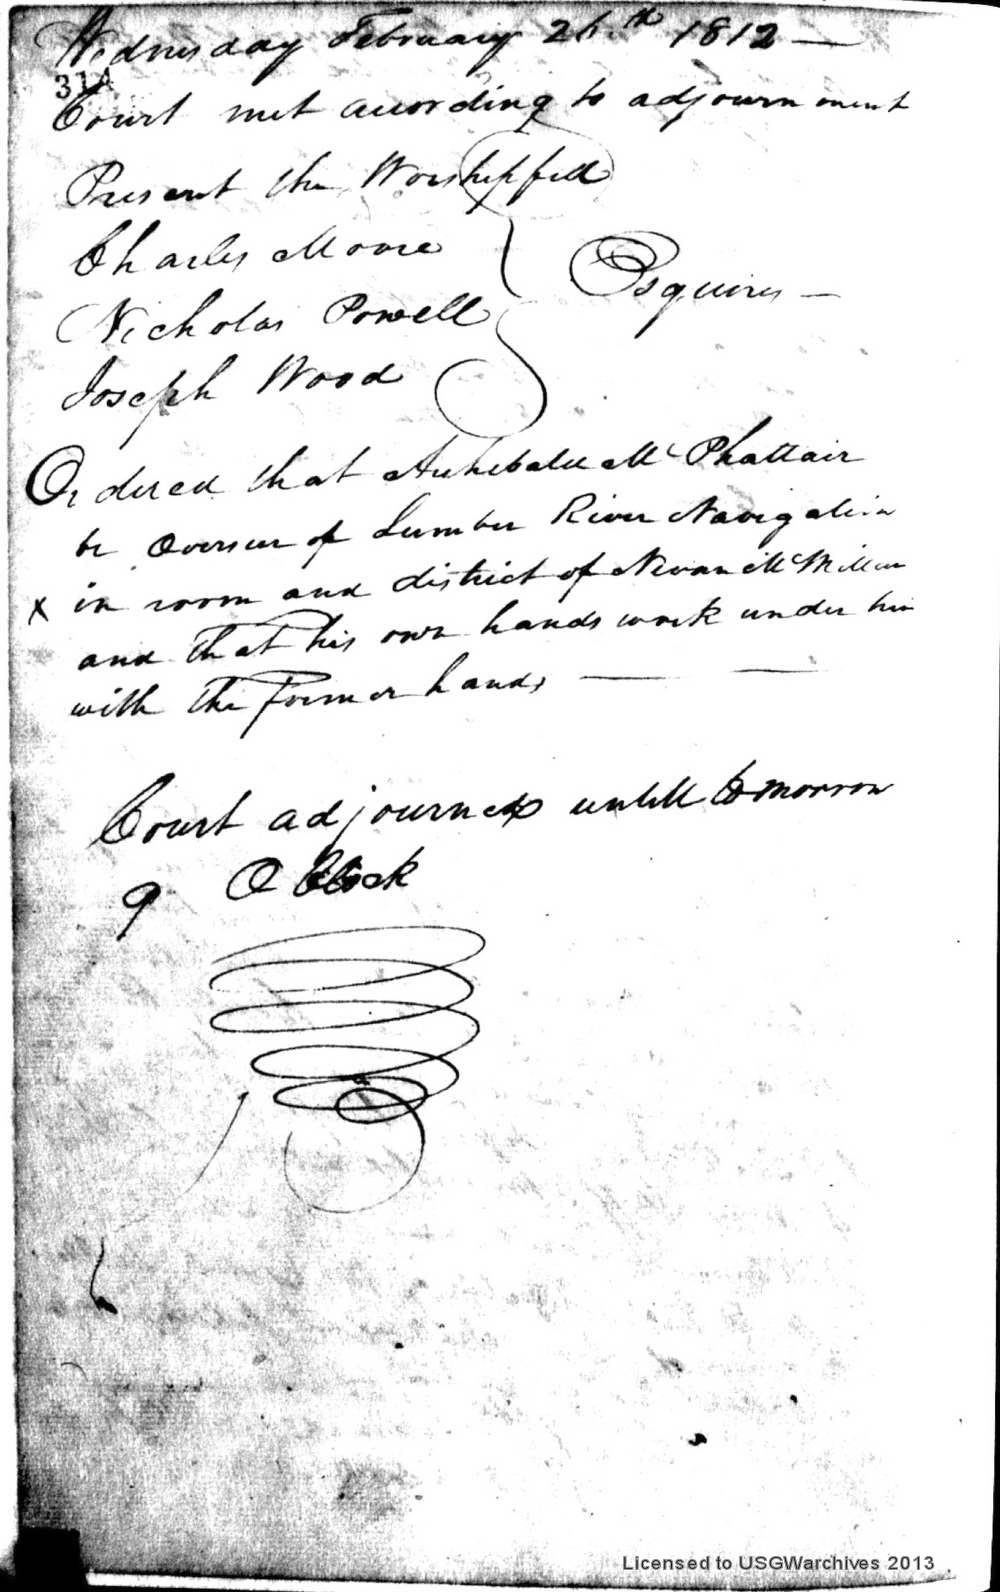 Wednesday February 26th 1812 —
31A
Court met according to adjournment
Present the Worshipfull
Charles Moore
Esquires —
Nicholas Powell
Joseph Wood
Ordered that Archebald Mc Phattair
be Overseer of Lumber River Navigation
x in room and district of Nevan Mc Millan
and that his own hands work under him
with the former hands — —
Court adjourned untill tomorrow
9 O Clock
Licensed to USGWarchives 2013